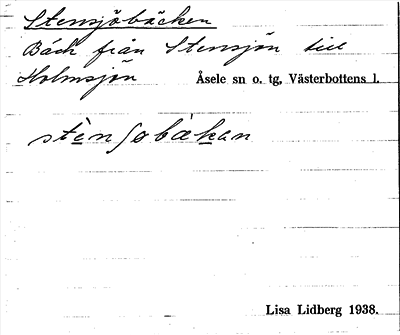 Stensjöbäcken
Bäck från Stensjön till
Holmsjön Åsele sn o. tg, Västerbottens l.
stènʃobàkan
Lisa Lidberg 1938.